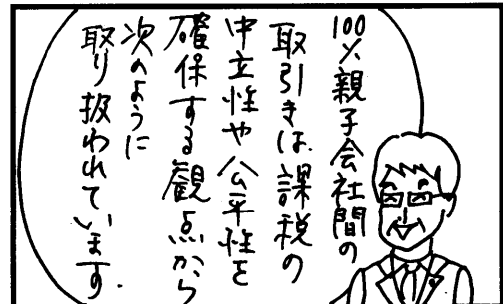 100%親子会社間の
取引きは、課税の
中立性や公平性を
確保する観点から
次のように
取り扱われています.